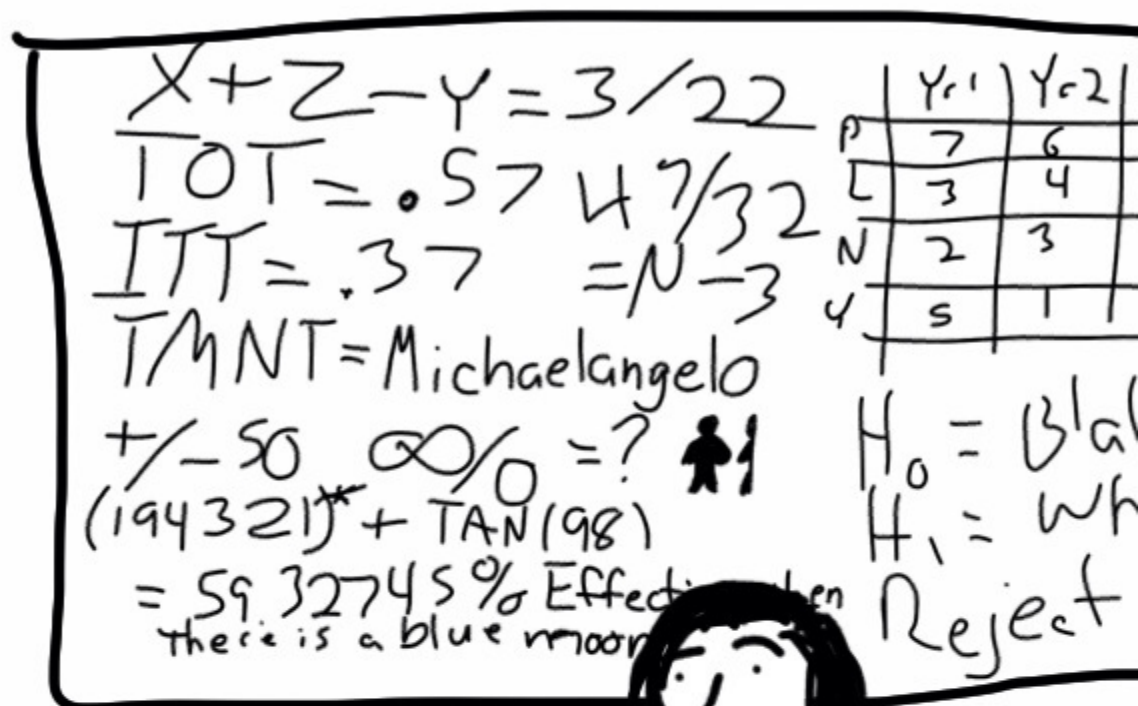 X+Z-Y=3/22
TOT=.57 47/32
ITT=.37 =N-3
TMNT=Michaelangelo
+/-50 ∞/0 =?
(194321)* + TAN(98)
= 59.32745% Effecti
there is a blue moon
Yr1 Yr2
P 7 6
L 3 4
N 2 3
Y 5 1
H₀ = Blal
H₁ = Wh
Reject